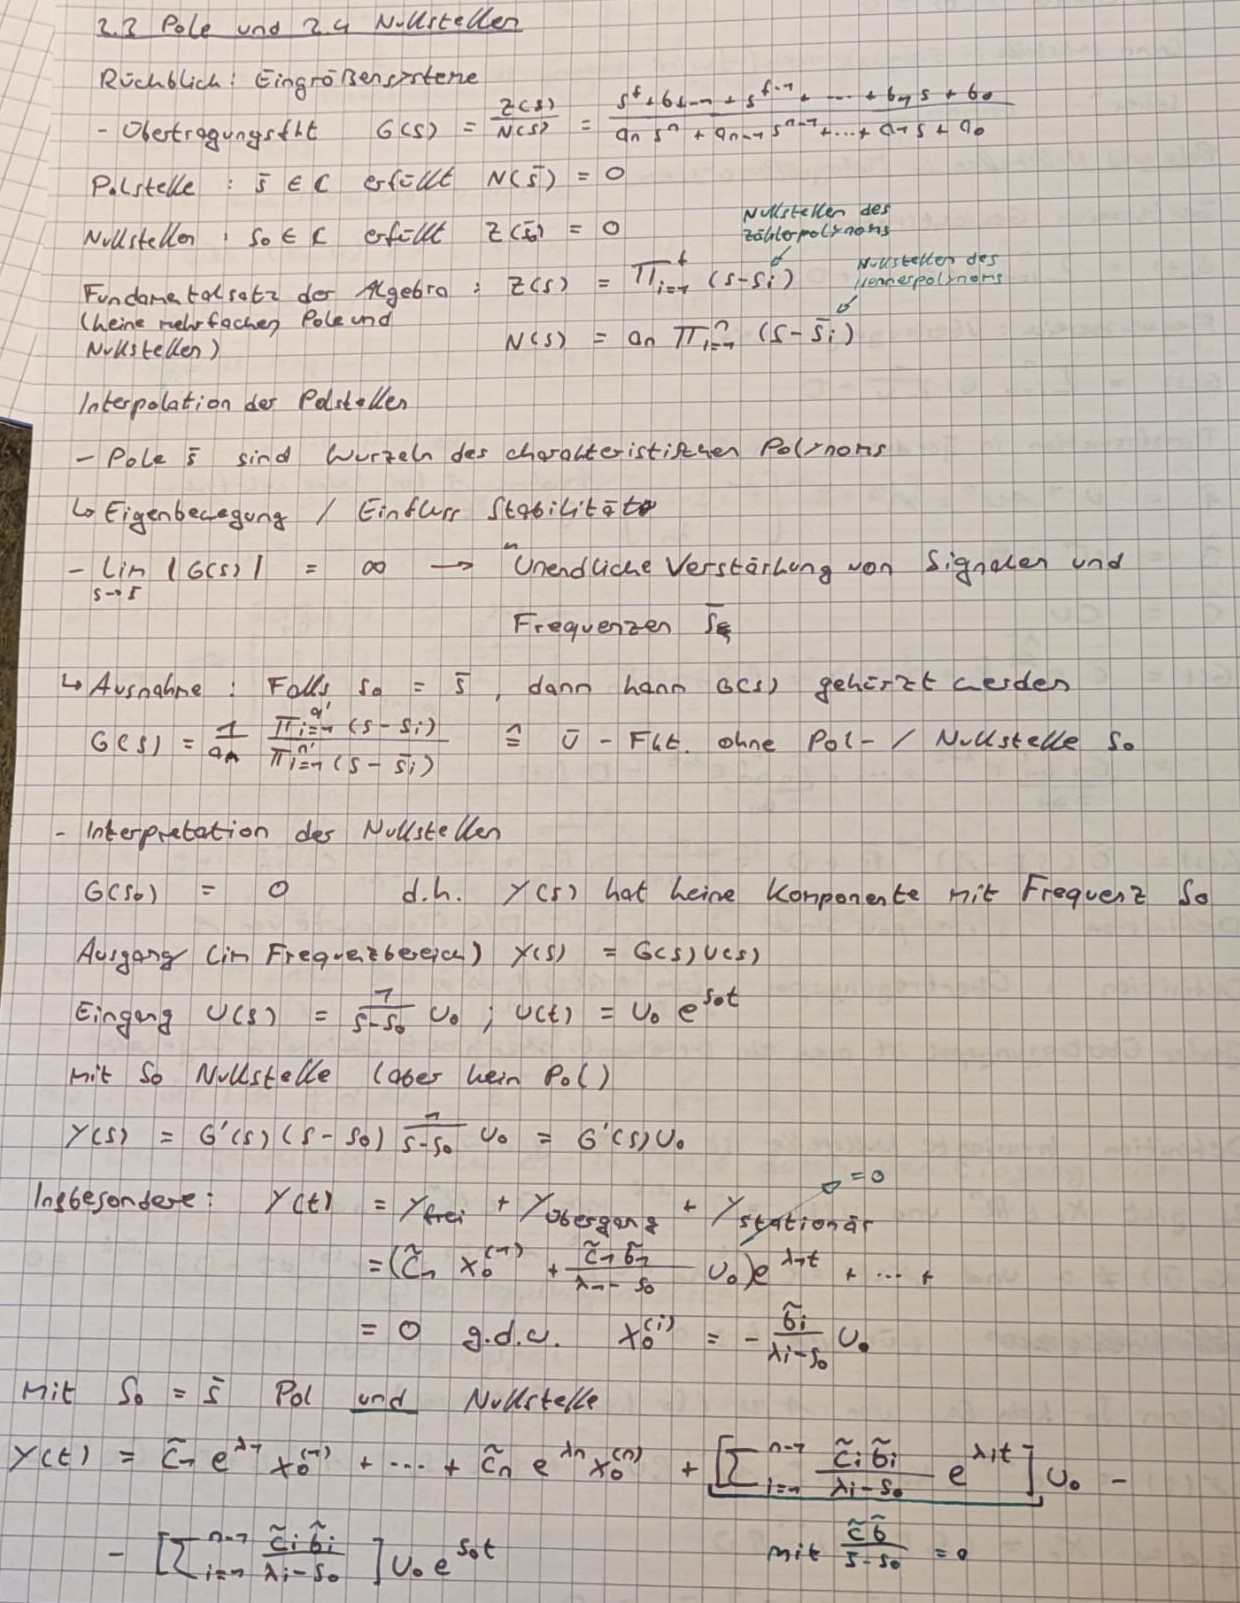 2.3 Pole und 2.4 Nullstellen
Rückblick: Eingrößensysteme
- Übertragungsfkt G(s) = Z(s)/N(s) = (s^f + b_{f-1} + s^{f-1} + ... + b_1 s + b_0) / (a_n s^n + a_{n-1} s^{n-1} + ... + a_1 s + a_0)
Polstelle : s̄ ∈ C erfüllt N(s̄) = 0
Nullstellen : s_0 ∈ C erfüllt Z(s_0) = 0
Nullstellen des Zählerpolynoms
Fundamentalsatz der Algebra : Z(s) = Π_{i=1}^f (s-s_i)
Nullstellen des Nennerpolynoms
(keine mehrfachen Pole und Nullstellen)
N(s) = a_n Π_{i=1}^n (s-s̄_i)
Interpolation der Polstellen
- Pole s̄ sind Wurzeln des charakteristischen Polynoms
↳ Eigenbewegung / Einfluss Stabilität
- lim_{s→s̄} |G(s)| = ∞ → "Unendliche Verstärkung von Signalen und
Frequenzen s̄
↳ Ausnahme : Falls s_0 = s̄ , dann kann G(s) gekürzt werden
G(s) = 1/a_n Π_{i=1}^{q'} (s-s_i) / Π_{i=1}^{n'} (s-s̄_i) ≙ Ü-Fkt. ohne Pol- / Nullstelle s_0
- Interpretation der Nullstellen
G(s_0) = 0 d.h. Y(s) hat keine Komponente mit Frequenz s_0
Ausgang (im Frequenzbereich) Y(s) = G(s)U(s)
Eingang U(s) = 1/(s-s_0) U_0 ; U(t) = U_0 e^{s_0t}
mit s_0 Nullstelle (aber kein Pol)
Y(s) = G'(s)(s-s_0) 1/(s-s_0) U_0 = G'(s)U_0
Insbesondere: Y(t) = Y_frei + Y_Übergang + Y_stationär → =0
= (c̃_1 x_0^{(1)} + (c̃_1 b̃_1)/(λ_1 - s_0) U_0)e^{λ_1t} + ... +
= 0 g.d.w. x_0^{(i)} = - b̃_i/(λ_i-s_0) U_0
Mit s_0 = s̄ Pol und Nullstelle
Y(t) = c̃_1 e^{λ_1} x_0^{(1)} + ... + c̃_n e^{λ_n} x_0^{(n)} + [Σ_{i=1}^{n-1} (c̃_i b̃_i)/(λ_i-s_0) e^{λ_it}] U_0 -
- [Σ_{i=1}^{n-1} (c̃_i b̃_i)/(λ_i-s_0)] U_0 e^{s_0t} mit (c̃ b̃)/(s̄-s_0) = 0